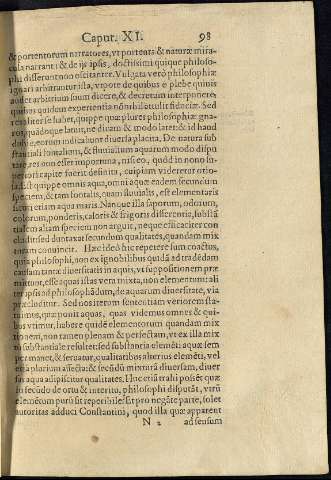 Caput. XI. 98
& portentorum narratores, vt portenta & naturæ mira-
cula narrant: & de ijs apsis, doctissimi quique philoso-
phi disserunt non oscitanter. Vulgata verò philosophiæ
ignari arbitrantur ista, vtpote de quibus è plebe quiuis
audet arbitrium suum dicere, & decretum interponere
quibus quidem experientia nonnihil
realiter se habet, quippe quæ plures philosophiæ gna-
ros, quàdoque latuit, ne dicam & modo latet: & id haud
dubiè, eorum indicabunt diuersa placita. De natura sub-
stantiali fontalium, & fluuialium aquarum modo dispu
tare, res non esset importuna, nisi eo, quòd in nono su-
periori capite fuerit definita, cuipiam videretur otio-
sa. Est quippe omnis aqua, omni aquæ eadem secundum
speciem, & tam fontalis, quam fluuialis, est elementaris
sicuti etiam aqua maris. Nanque illa saporum, odorum,
colorum, ponderis, caloris & frigoris differentia, substã
tialem aliam speciem non arguit, neque efficaciter con
cludit sed duntaxat secundum qualitates, quandam mix
turam conuincit. Hæc ideò hîc repetere sum coactus,
quia philosophi, non ex ignobilibus quidã ad tradēdam
causam tantæ diuersitatis in aquis, vt suppositionem præ
mittunt, esse aquas istas vera mixta, non elementum: ali
ter apsis ad philosophãdum, de aquarum diuersitate, via
præcluditur. Sed nos iterum sententiam veriorem sta-
tuimus, quæ ponit aquas, quas videmus omnes & qui-
bus vtimur, habere quidē elementorum quandam mix
tionem, non tamen plenam & perfectam, vt ex illa mix
to substantiale resultet: sed substantia elemēti aquæ sem
per manet, & seruatur, qualitatibus alterius elemēti, vel
et a plurium affecta: & secūdū mixturã diuersam, diuer
sas aqua adipiscitur qualitates. Huc etiã trahi possēt quæ
in secūdo de ortu & interitu, philosophi disputãt, vtrū
elemētum purū sit reperibile: Et pro negãte parte, solet
autoritas adduci Constantini, quod illa quæ apparent
N 2 ad sensum